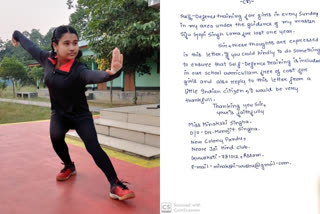 -(2)-
Self-Defence training for girls in every Sunday
in my area under the guidance of my master
Siju Gopi Singh Loma for last one year.
Sir, these thoughts are expressed
in this letter. If you could kindly to do something
to ensure that Self-Defence training is included
in our school curriculum free of cost for
girls and also reply to this letter from a
little Indian citizen, I would be very
thankful.
Thanking you Sir,
Your's faithfully
Miss Minakshi Singha.
D/O - Dr. Manojit Singha.
New Colony Pandu,
Near JSI Hind club.
Guwahati - 781012, Assam.
E-mail - minakshi
@gmail.com.
CS
Scanned with
CamScanner